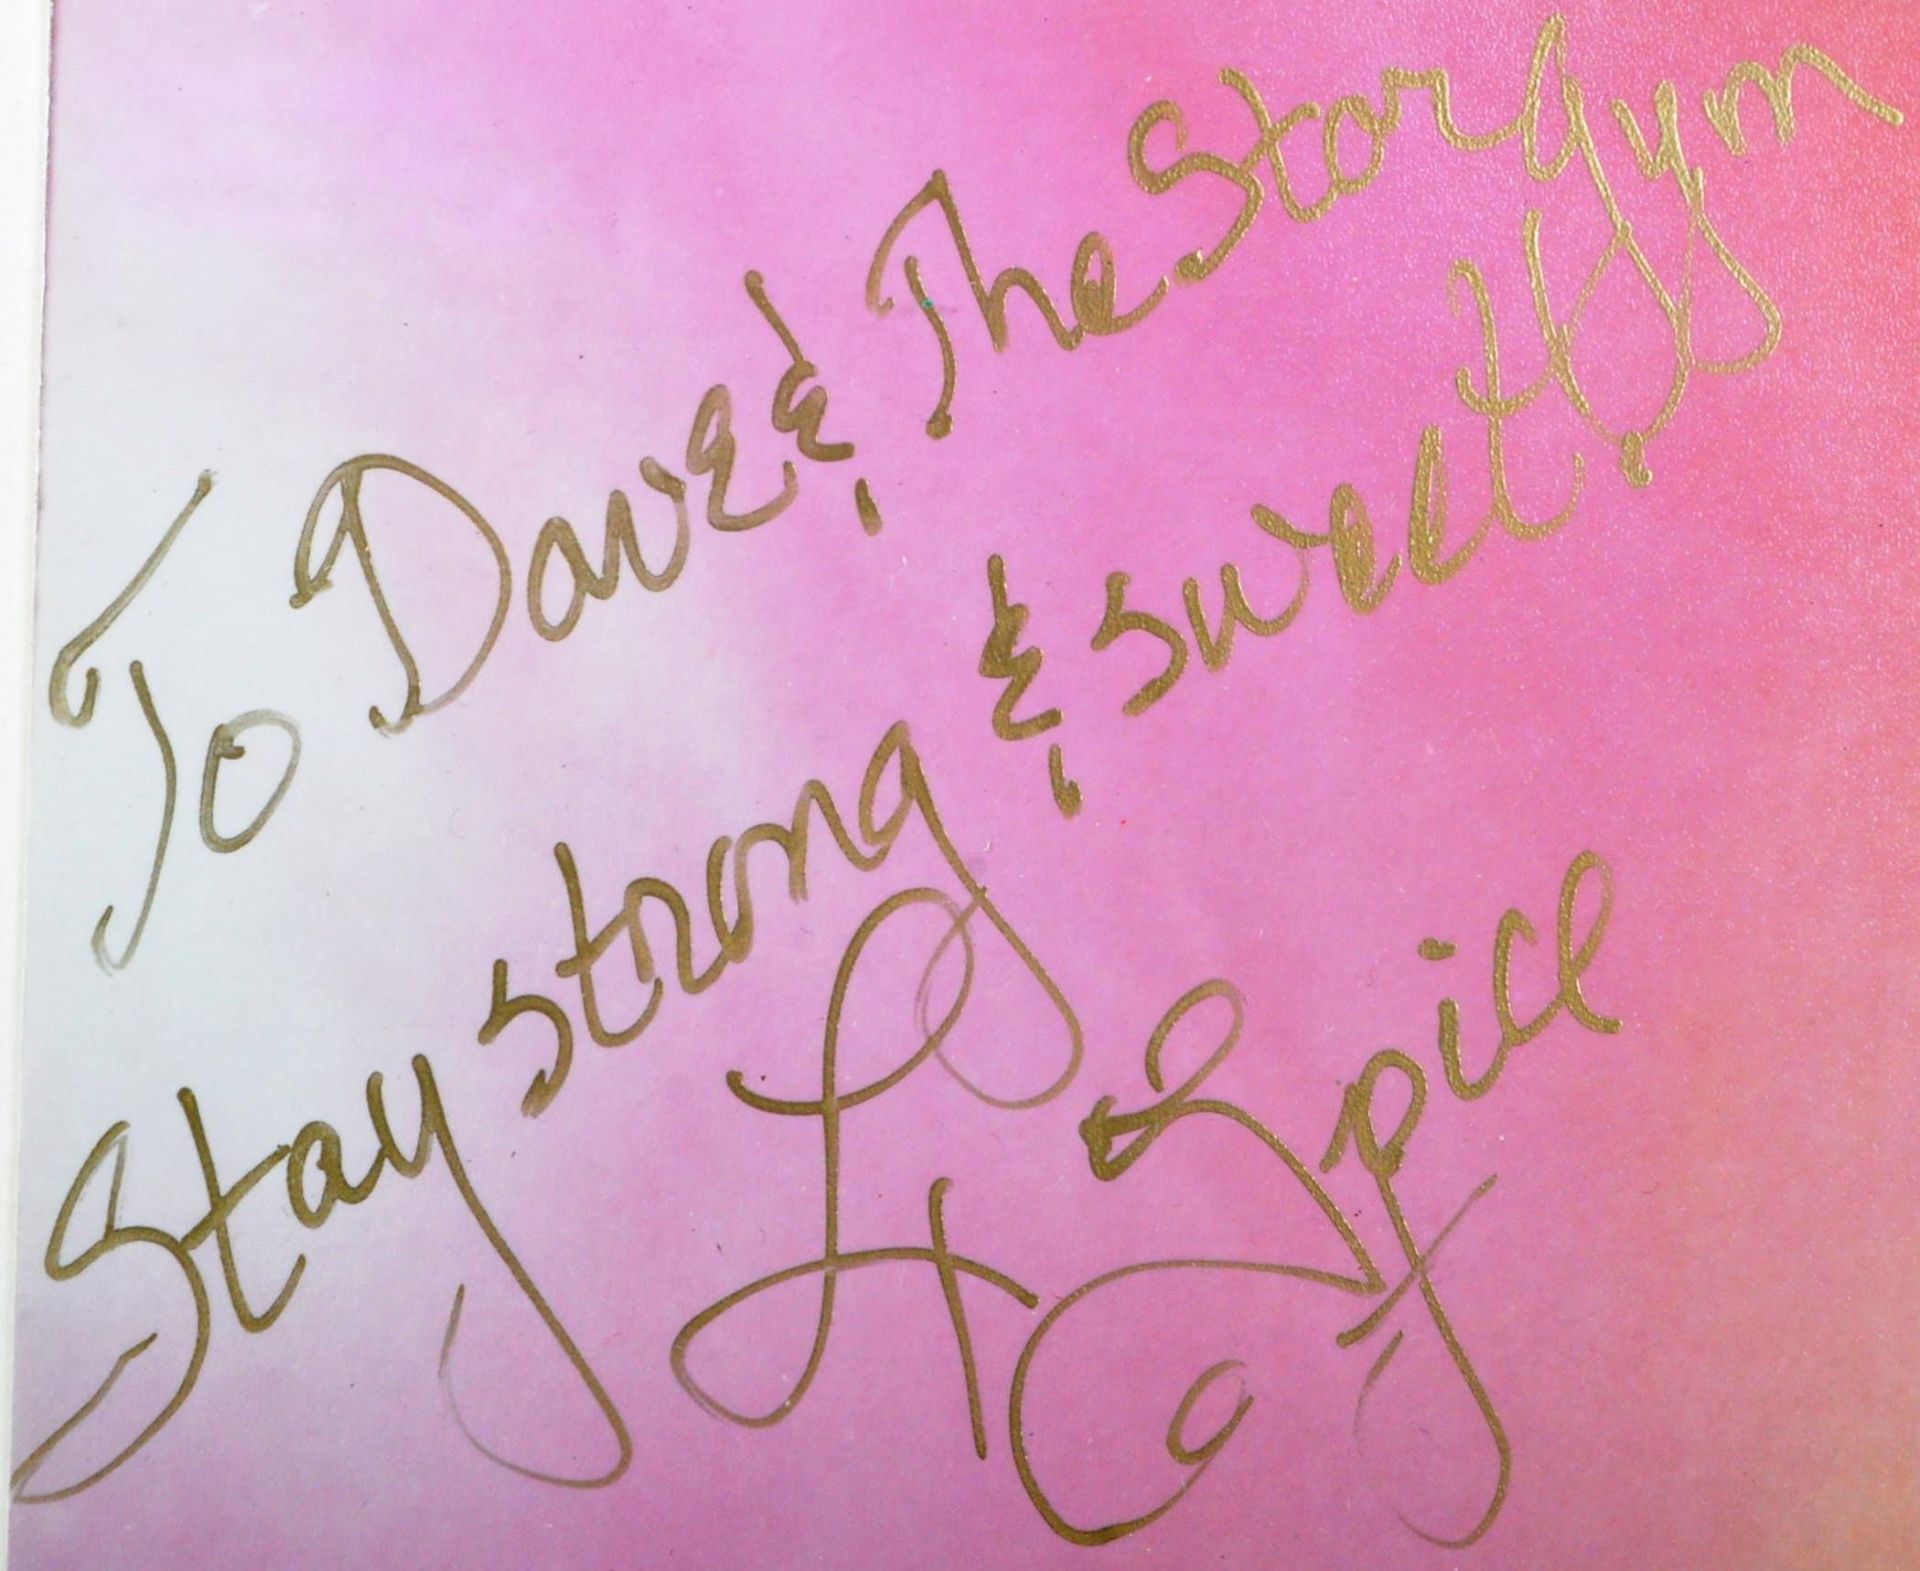 To Dave & The Star Gym
Stay strong & sweet!!
Spice